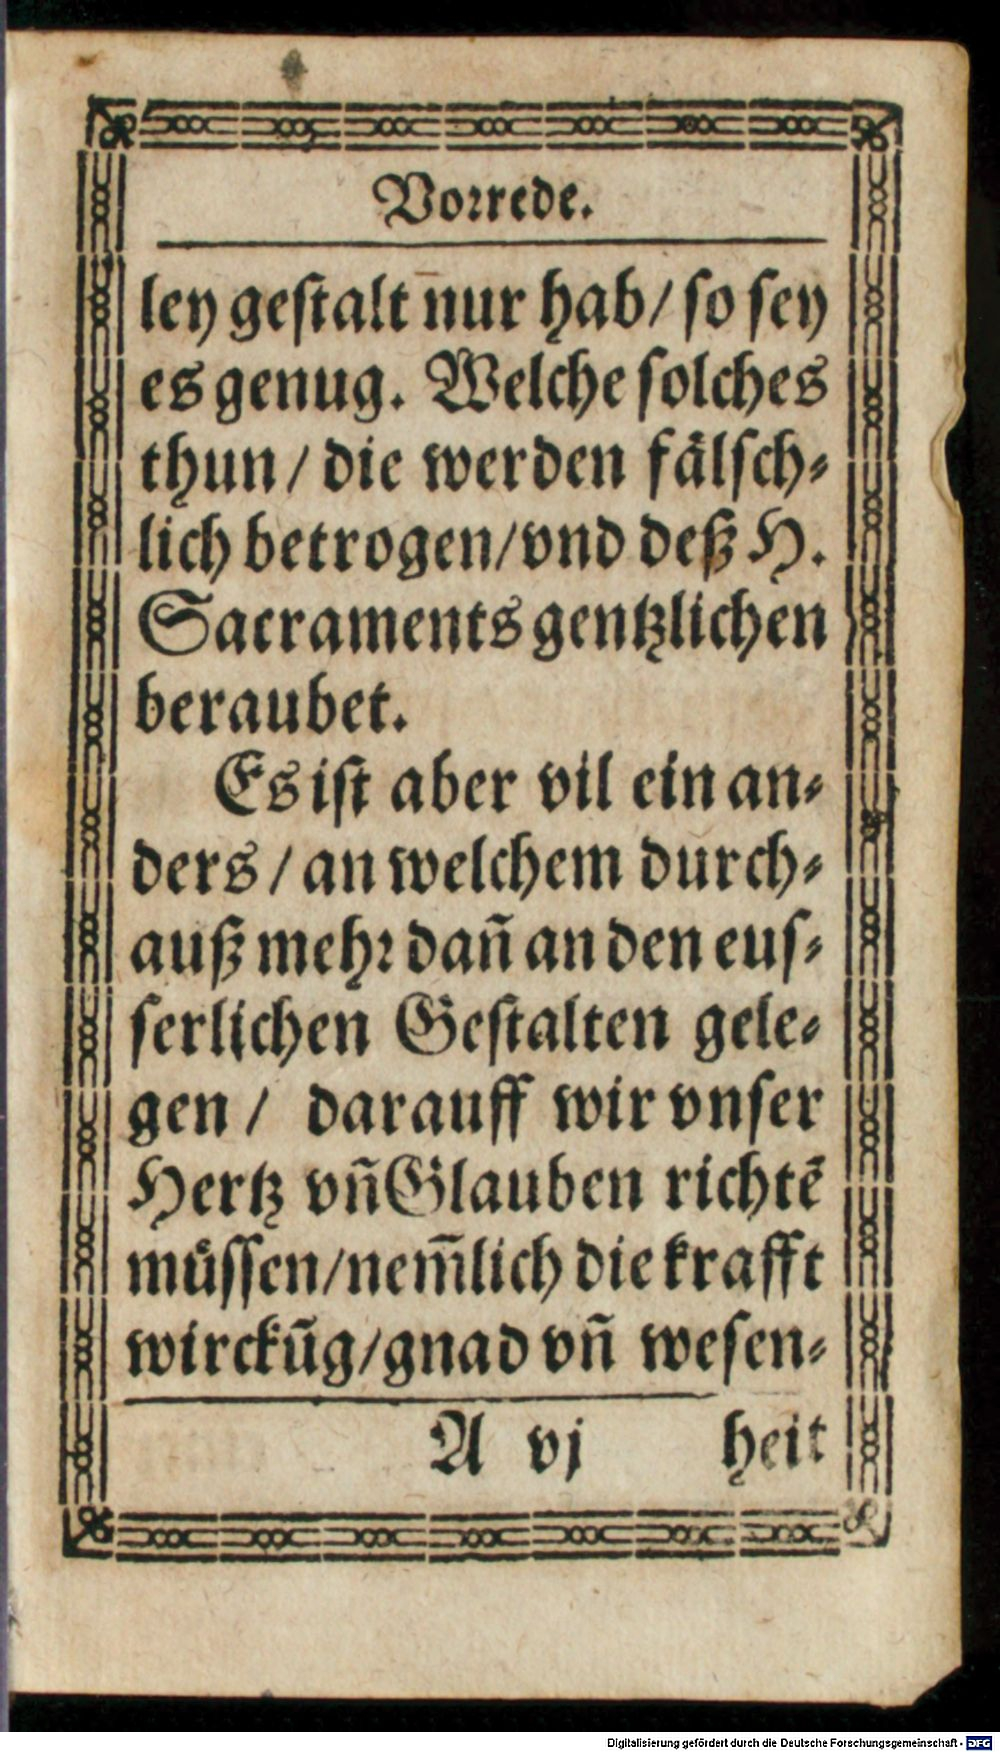 Vorrede.
ley gestalt nur hab/ so sey
es genug. Welche solches
thun/ die werden fälsch-
lich betrogen/vnd deß H.
Sacraments gentzlichen
beraubet.
Es ist aber vil ein an-
ders/ an welchem durch-
auß mehr dañ an den eus-
serlichen Gestalten gele-
gen/ darauff wir vnser
Hertz vñ Glauben richtẽ
müssen/nem̃lich die krafft
wirckũg/gnad vñ wesen-
A vj heit
Digitalisierung gefördert durch die Deutsche Forschungsgemeinschaft - DFG